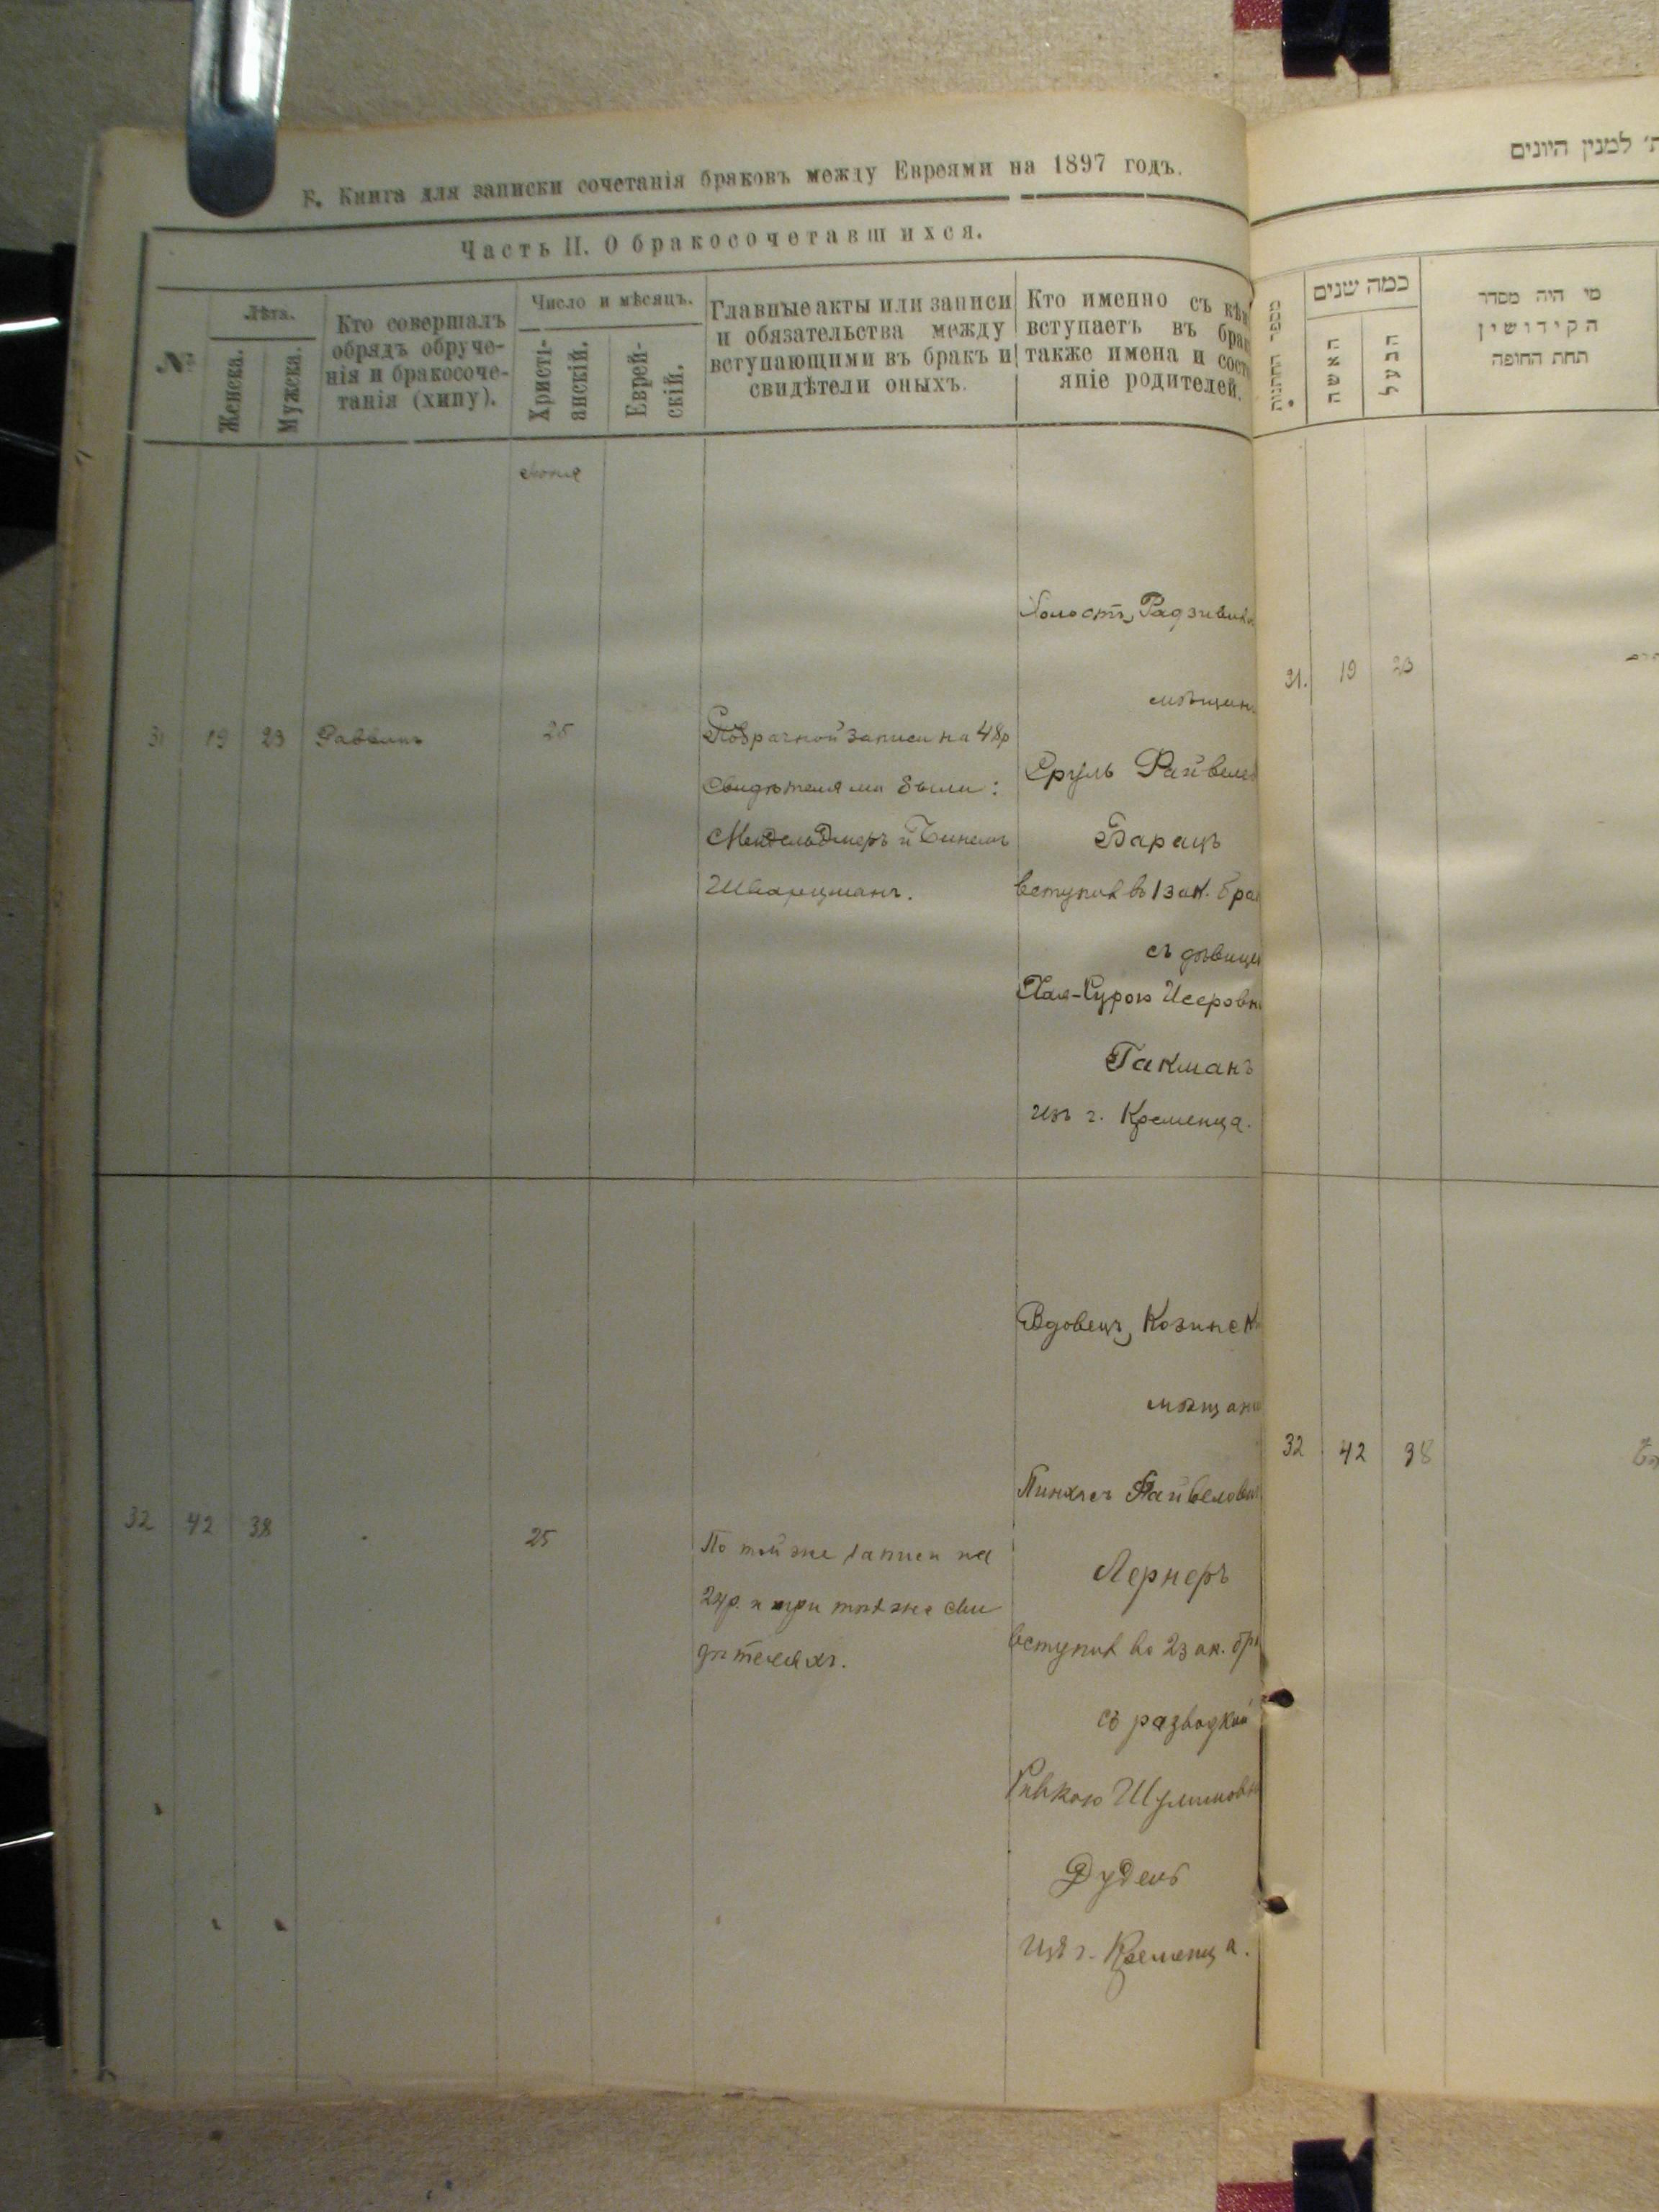 Б. Книга для записки сочетанія браковъ между Евреями на 1897 годъ.
Часть II. О бракосочетавшихся.
№
Лѣта.
Женска.
Мужска.
Кто совершалъ
обрядъ обруче-
нія и бракосоче-
танія (хипу).
Число и мѣсяцъ.
Христі-
анскій.
Еврей-
скій.
Главные акты или записи
и обязательства между
вступающими въ бракъ и
свидѣтели оныхъ.
Кто именно съ кѣм
вступаетъ въ брак
также имена и сост
яніе родителей.
Іюня
31 19 23 Раввинъ 25
По брачной записи на 48 р
Свидѣтелями были:
Мендель Дмеръ и
Шварцманъ.
Холостъ, Радзивил
мѣщан
Сруль Файвел
Барацъ
вступил въ 1 зак. бра
съ дѣвице
Хая-Сурою Исеровн
Гакманъ
изъ г. Кременца.
32 42 38 25
По той же записи на
24 р. и при тѣхже сви
дѣтеляхъ.
Вдовецъ, Козинск
мѣщани
Пинхасъ Файвелович
Лернеръ
вступил во 2 зак. бра
съ разводкой
Ривкою Шулимовн
Дудель
изъ г. Кременца.
ת׳ למנין היונים
מספר החתונות
כמה שנים
האשה
הבעל
מי היה מסדר
הקידושין
תחת החופה
31. 19 23
32 42 38